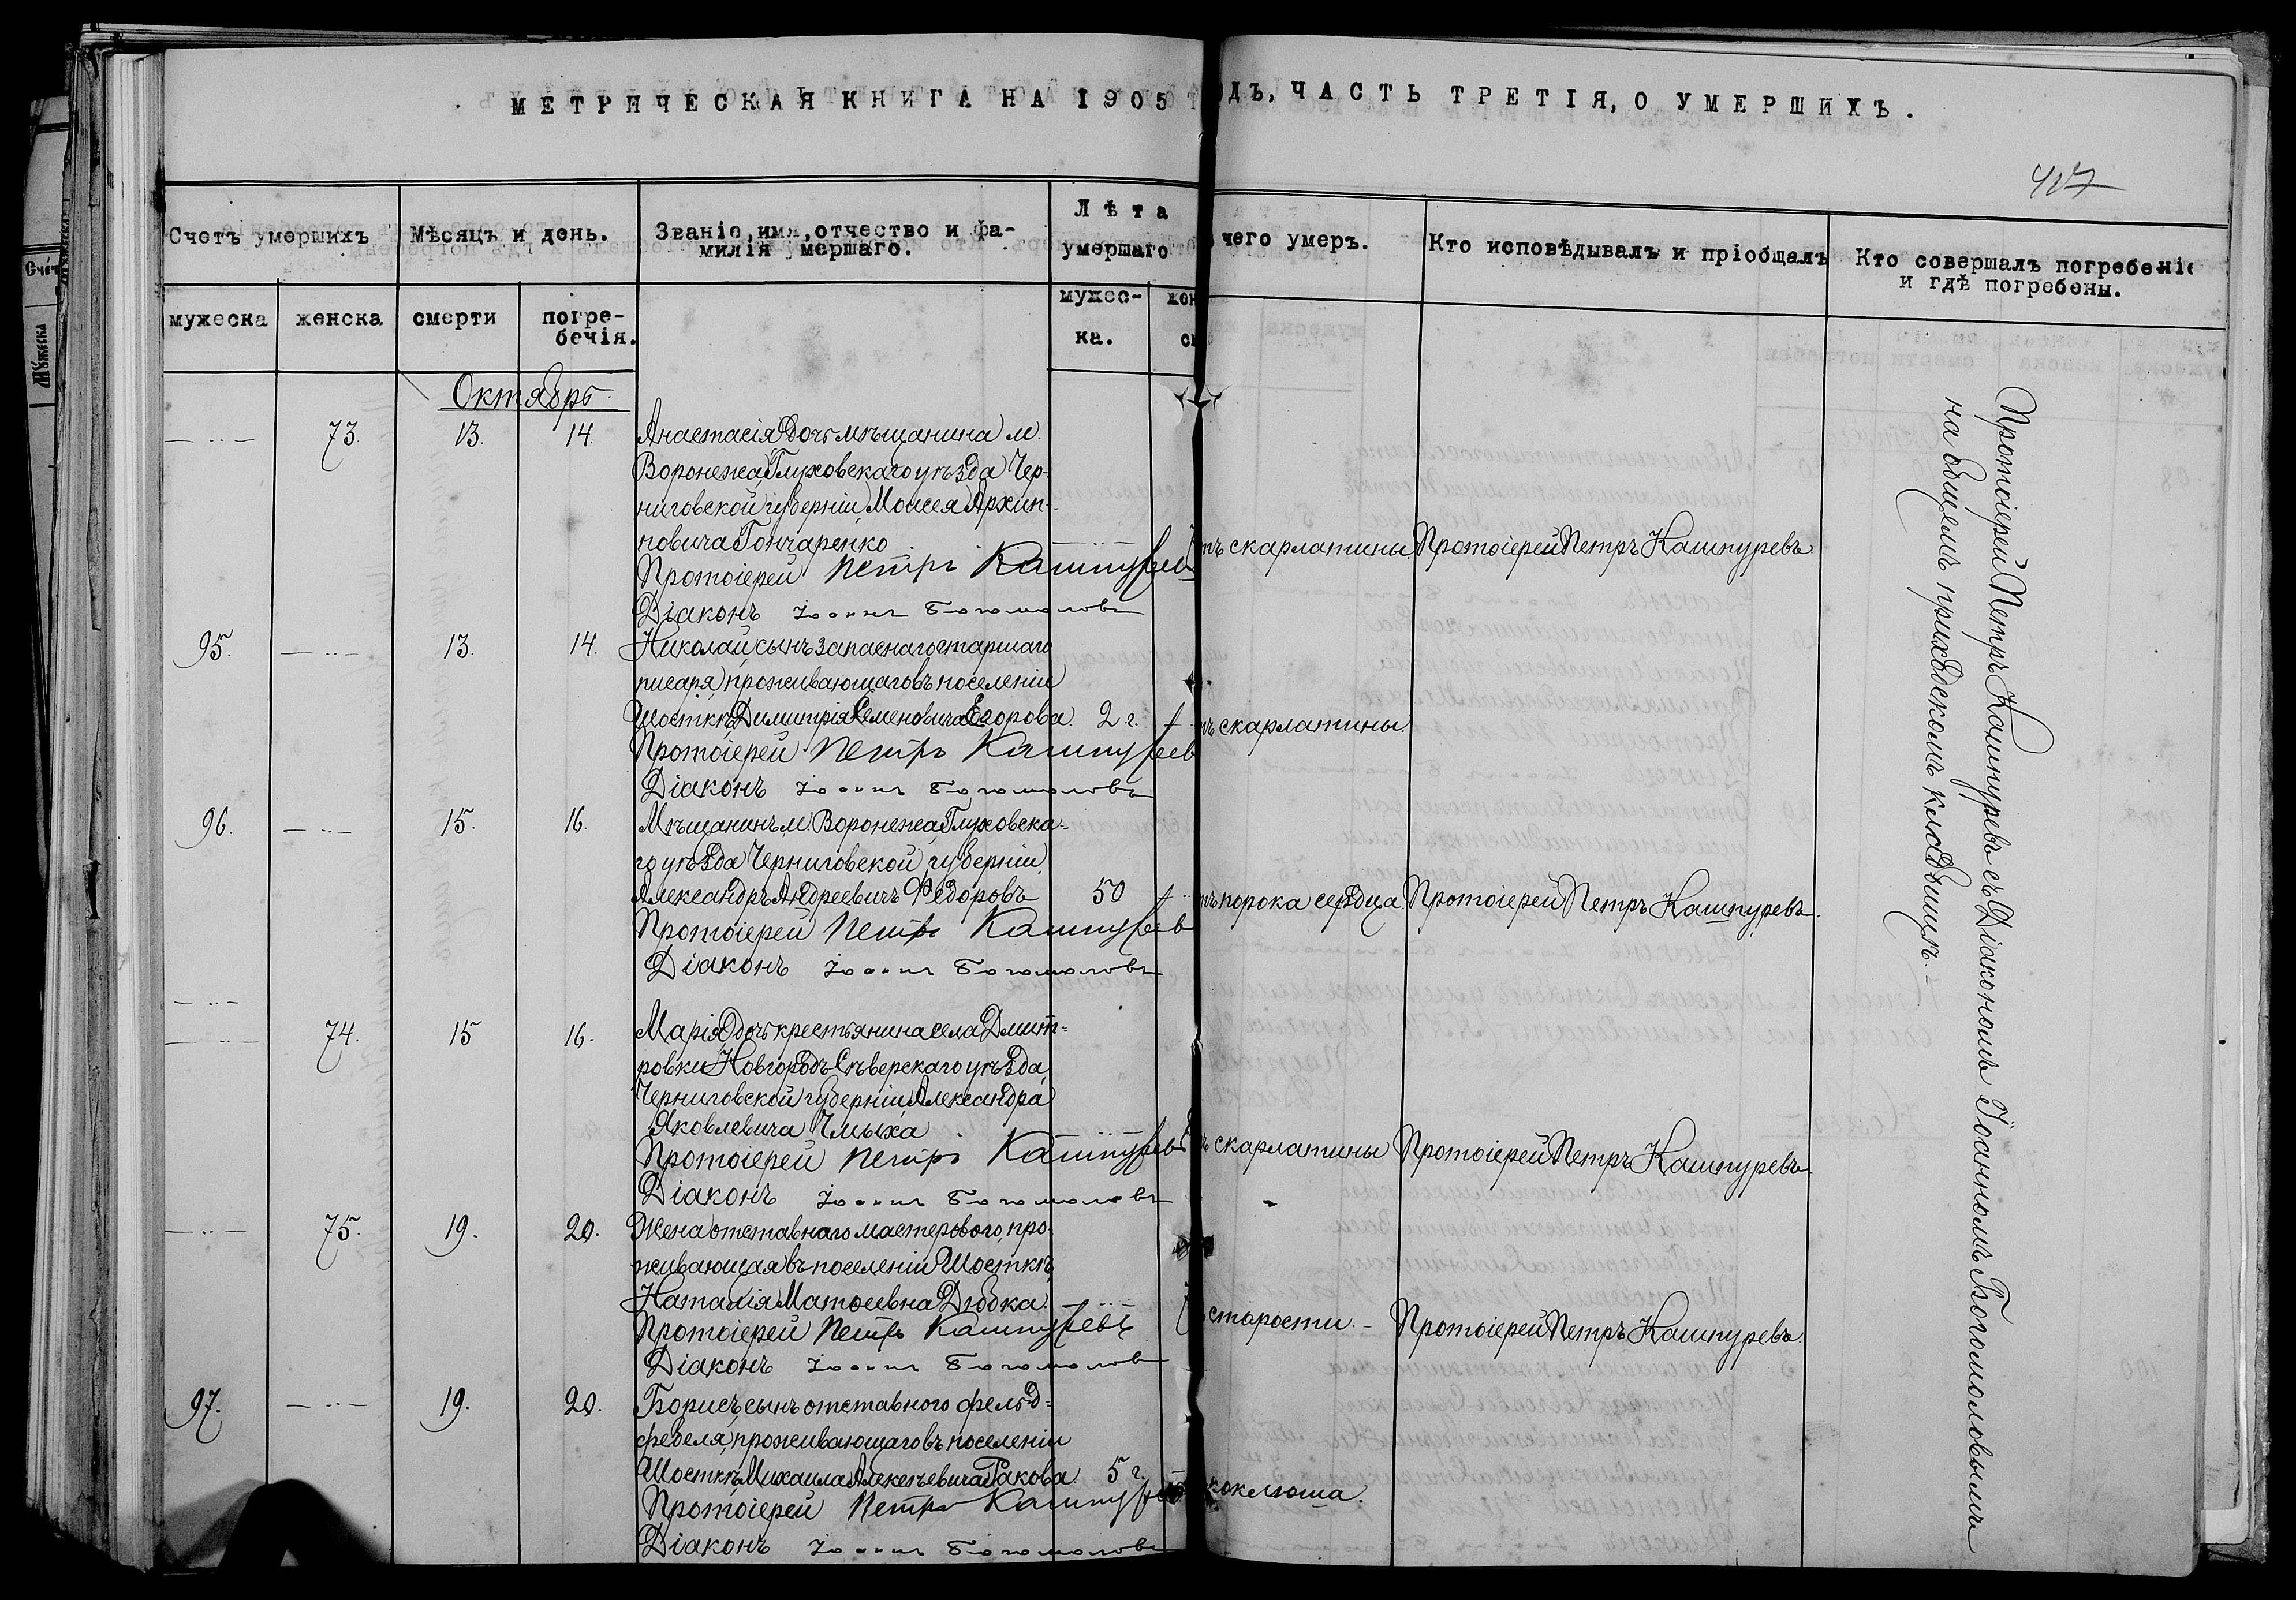 МЕТРИЧЕСКАЯ КНИГА НА 1905 ГОДЪ, ЧАСТЬ ТРЕТІЯ, О УМЕРШИХЪ.
Счетъ умершихъ
Мѣсяцъ и день.
Званіе, имя, отчество и фа-
милія умершаго.
Лѣта
умершаго
чего умеръ.
Кто исповѣдывалъ и пріобщалъ
Кто совершалъ погребеніе
и гдѣ погребены.
мужеска
женска
смерти
погре-
бенія.
мужес-
ка.
жен
ск
Октябрь
73. 13. 14. Анастасія дочь мѣщанина м.
Воронежа, Глуховскаго уѣзда Чер-
ниговской губерніи, Моисея Архип-
повича Гончаренко
тъ скарлатины Протоіерей Петръ Кашпуревъ
Протоіерей Петръ Кашпуревъ
Діаконъ Іоаннъ Богомоловъ
95. 13. 14. Николай, сынъ запаснаго старшаго
писаря, проживающаго въ поселеніи
Шосткѣ, Димитрія Семеновича Егорова. 2 г. тъ скарлатины.
Протоіерей Петръ Кашпуревъ
Діаконъ Іоаннъ Богомоловъ
96. 15. 16. Мѣщанинъ м. Воронежа, Глуховска-
го уѣзда Черниговской губерніи,
Александръ Андреевичъ Федоровъ 50 тъ порока сердца. Протоіерей Петръ Кашпуревъ.
Протоіерей Петръ Кашпуревъ
Діаконъ Іоаннъ Богомоловъ
74. 15 16. Марія, дочь крестьянина села Дмит-
ровки, Новгородъ-Сѣверскаго уѣзда,
Черниговской губерніи Александра
Яковлевича Чмыха
ъ скарлатины Протоіерей Петръ Кашпуревъ.
Протоіерей Петръ Кашпуревъ
Діаконъ Іоаннъ Богомоловъ
75. 19. 20. Жена отставнаго мастероваго, про-
живающая въ поселеніи Шосткѣ,
Наталія Матвеевна Дюбка.
старости. Протоіерей Петръ Кашпуревъ.
Протоіерей Петръ Кашпуревъ
Діаконъ Іоаннъ Богомоловъ
97. 19. 20. Борисъ, сынъ отставного фельд-
фебеля, проживающаго въ поселеніи
Шосткѣ, Михаила Алексѣевича Ракова. 5 г. коклюша.
Протоіерей Петръ Кашпуревъ
Діаконъ Іоаннъ Богомоловъ
Протоіерей Петръ Кашпуревъ съ Діакономъ Іоанномъ Богомоловымъ
на общемъ приходскомъ кладбищѣ.